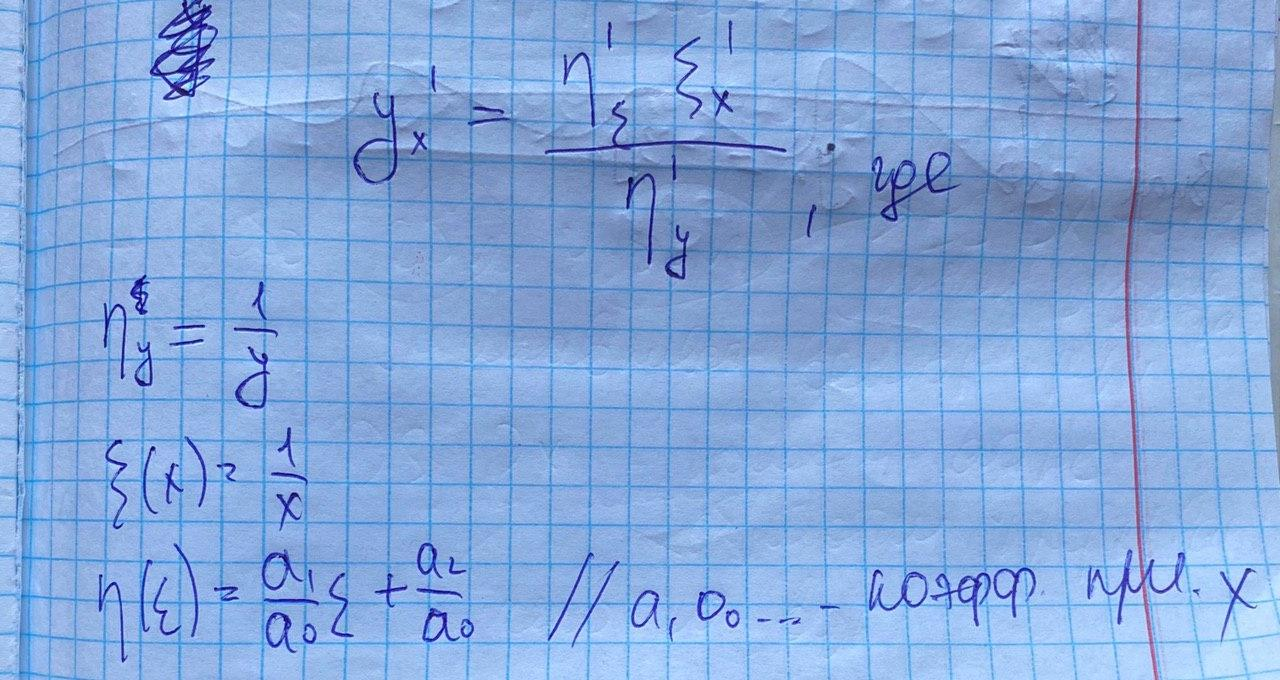 y'ₓ = η'_ξ ξ'ₓ / η'_y , где
η_y = 1/y
ξ(x) = 1/x
η(ξ) = a₁/a₀ ξ + a₂/a₀ // a, a₀ ... - коэфф. при. x